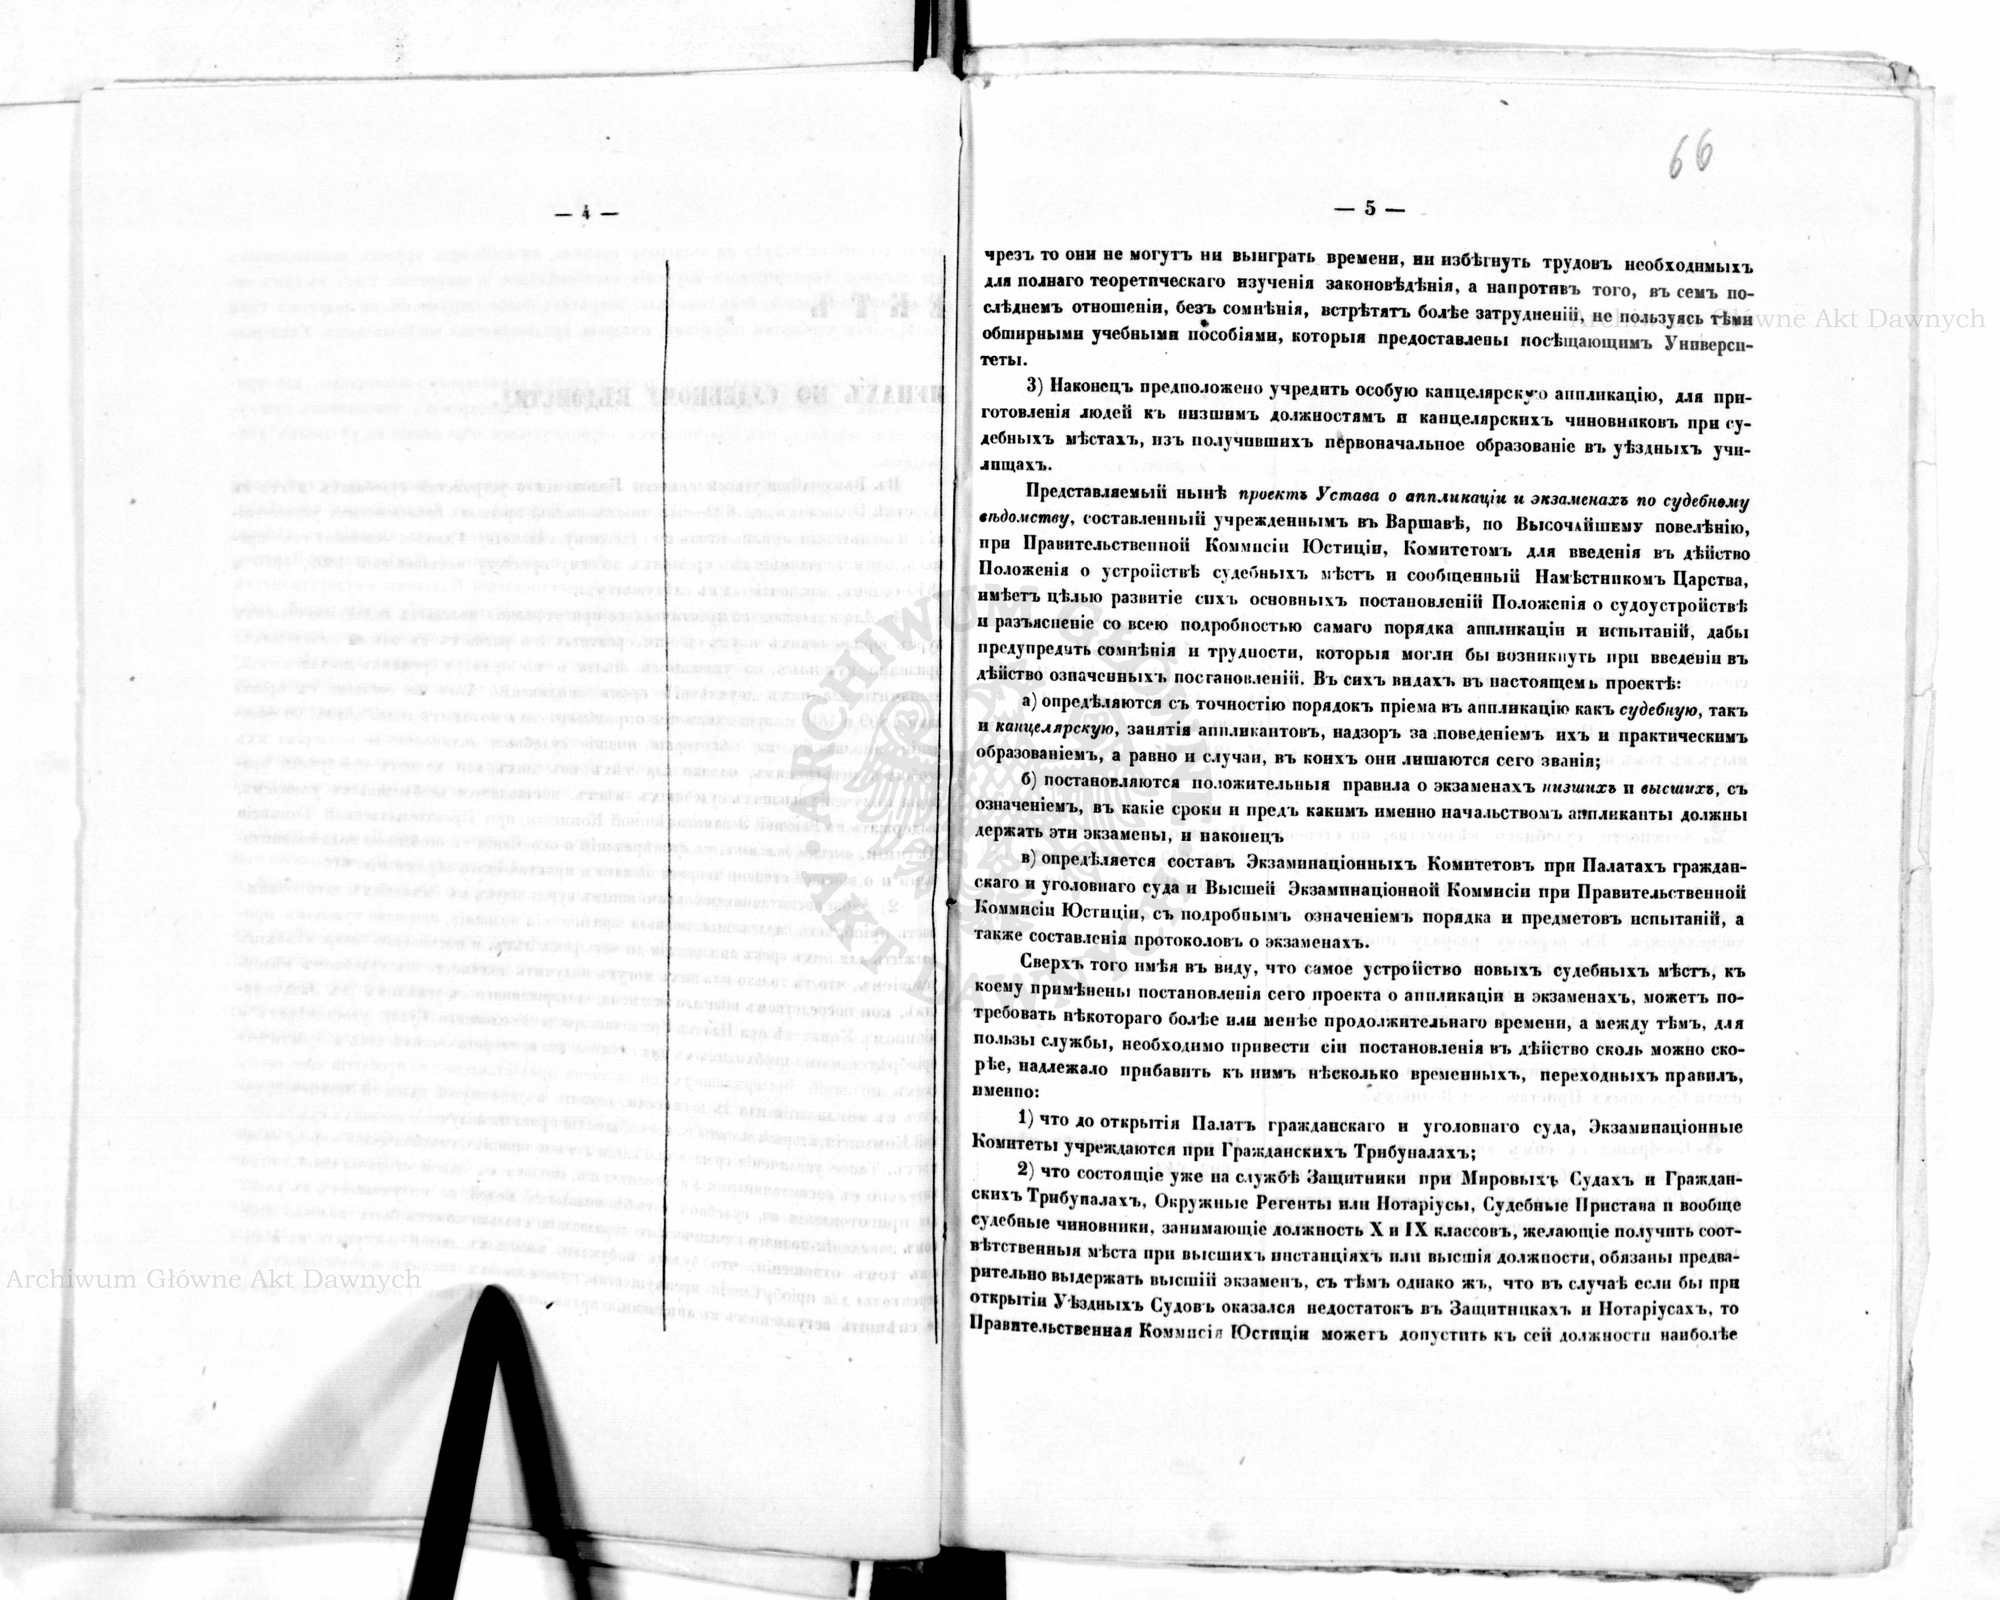 — 4 —
66
— 5 —
чрезъ то они не могутъ ни выиграть времени, ни избѣгнуть трудовъ необходимыхъ
для полнаго теоретическаго изученія законовѣдѣнія, а напротивъ того, въ семъ по-
слѣднемъ отношеніи, безъ сомнѣнія, встрѣтятъ болѣе затрудненій, не пользуясь тѣми
обширными учебными пособіями, которыя предоставлены посѣщающимъ Универси-
теты.
3) Наконецъ предположено учредить особую канцелярскую аппликацію, для при-
готовленія людей къ низшимъ должностямъ и канцелярскихъ чиновниковъ при су-
дебныхъ мѣстахъ, изъ получившихъ первоначальное образованіе въ уѣздныхъ учи-
лищахъ.
Представляемый нынѣ проектъ Устава о аппликаціи и экзаменахъ по судебному
вѣдомству, составленный учрежденнымъ въ Варшавѣ, по Высочайшему повелѣнію,
при Правительственной Коммисіи Юстиціи, Комитетомъ для введенія въ дѣйство
Положенія о устройствѣ судебныхъ мѣстъ и сообщенный Намѣстникомъ Царства,
имѣетъ цѣлью развитіе сихъ основныхъ постановленій Положенія о судоустройствѣ
и разъясненіе со всею подробностью самаго порядка аппликаціи и испытаній, дабы
предупредить сомнѣнія и трудности, которыя могли бы возникнуть при введеніи въ
дѣйство означенныхъ постановленій. Въ сихъ видахъ въ настоящемъ проектѣ:
а) опредѣляются съ точностію порядокъ пріема въ аппликацію какъ судебную, такъ
и канцелярскую, занятія аппликантовъ, надзоръ за поведеніемъ ихъ и практическимъ
образованіемъ, а равно и случаи, въ коихъ они лишаются сего званія;
б) постановляются положительныя правила о экзаменахъ низшихъ и высшихъ, съ
означеніемъ, въ какіе сроки и предъ какимъ именно начальствомъ аппликанты должны
держать эти экзамены, и наконецъ
в) опредѣляется составъ Экзаминаціонныхъ Комитетовъ при Палатахъ граждан-
скаго и уголовнаго суда и Высшей Экзаминаціонной Коммисіи при Правительственной
Коммисіи Юстиціи, съ подробнымъ означеніемъ порядка и предметовъ испытаній, а
также составленія протоколовъ о экзаменахъ.
Сверхъ того имѣя въ виду, что самое устройство новыхъ судебныхъ мѣстъ, къ
коему примѣнены постановленія сего проекта о аппликаціи и экзаменахъ, можетъ по-
требовать нѣкотораго болѣе или менѣе продолжительнаго времени, а между тѣмъ, для
пользы службы, необходимо привести сіи постановленія въ дѣйство сколь можно ско-
рѣе, надлежало прибавить къ нимъ нѣсколько временныхъ, переходныхъ правилъ,
именно:
1) что до открытія Палатъ гражданскаго и уголовнаго суда, Экзаминаціонные
Комитеты учреждаются при Гражданскихъ Трибуналахъ;
2) что состоящіе уже на службѣ Защитники при Мировыхъ Судахъ и Граждан-
скихъ Трибуналахъ, Окружные Регенты или Нотаріусы, Судебные Пристава и вообще
судебные чиновники, занимающіе должность X и IX классовъ, желающіе получить соот-
вѣтственныя мѣста при высшихъ инстанціяхъ или высшія должности, обязаны предва-
рительно выдержать высшій экзаменъ, съ тѣмъ однако жъ, что въ случаѣ если бы при
открытіи Уѣздныхъ Судовъ оказался недостатокъ въ Защитникахъ и Нотаріусахъ, то
Правительственная Коммисія Юстиціи можетъ допустить къ сей должности наиболѣе
Archiwum Główne Akt Dawnych
Archiwum Główne Akt Dawnych
ARCHIWUM GŁÓWNE • AKT DAWNYCH •